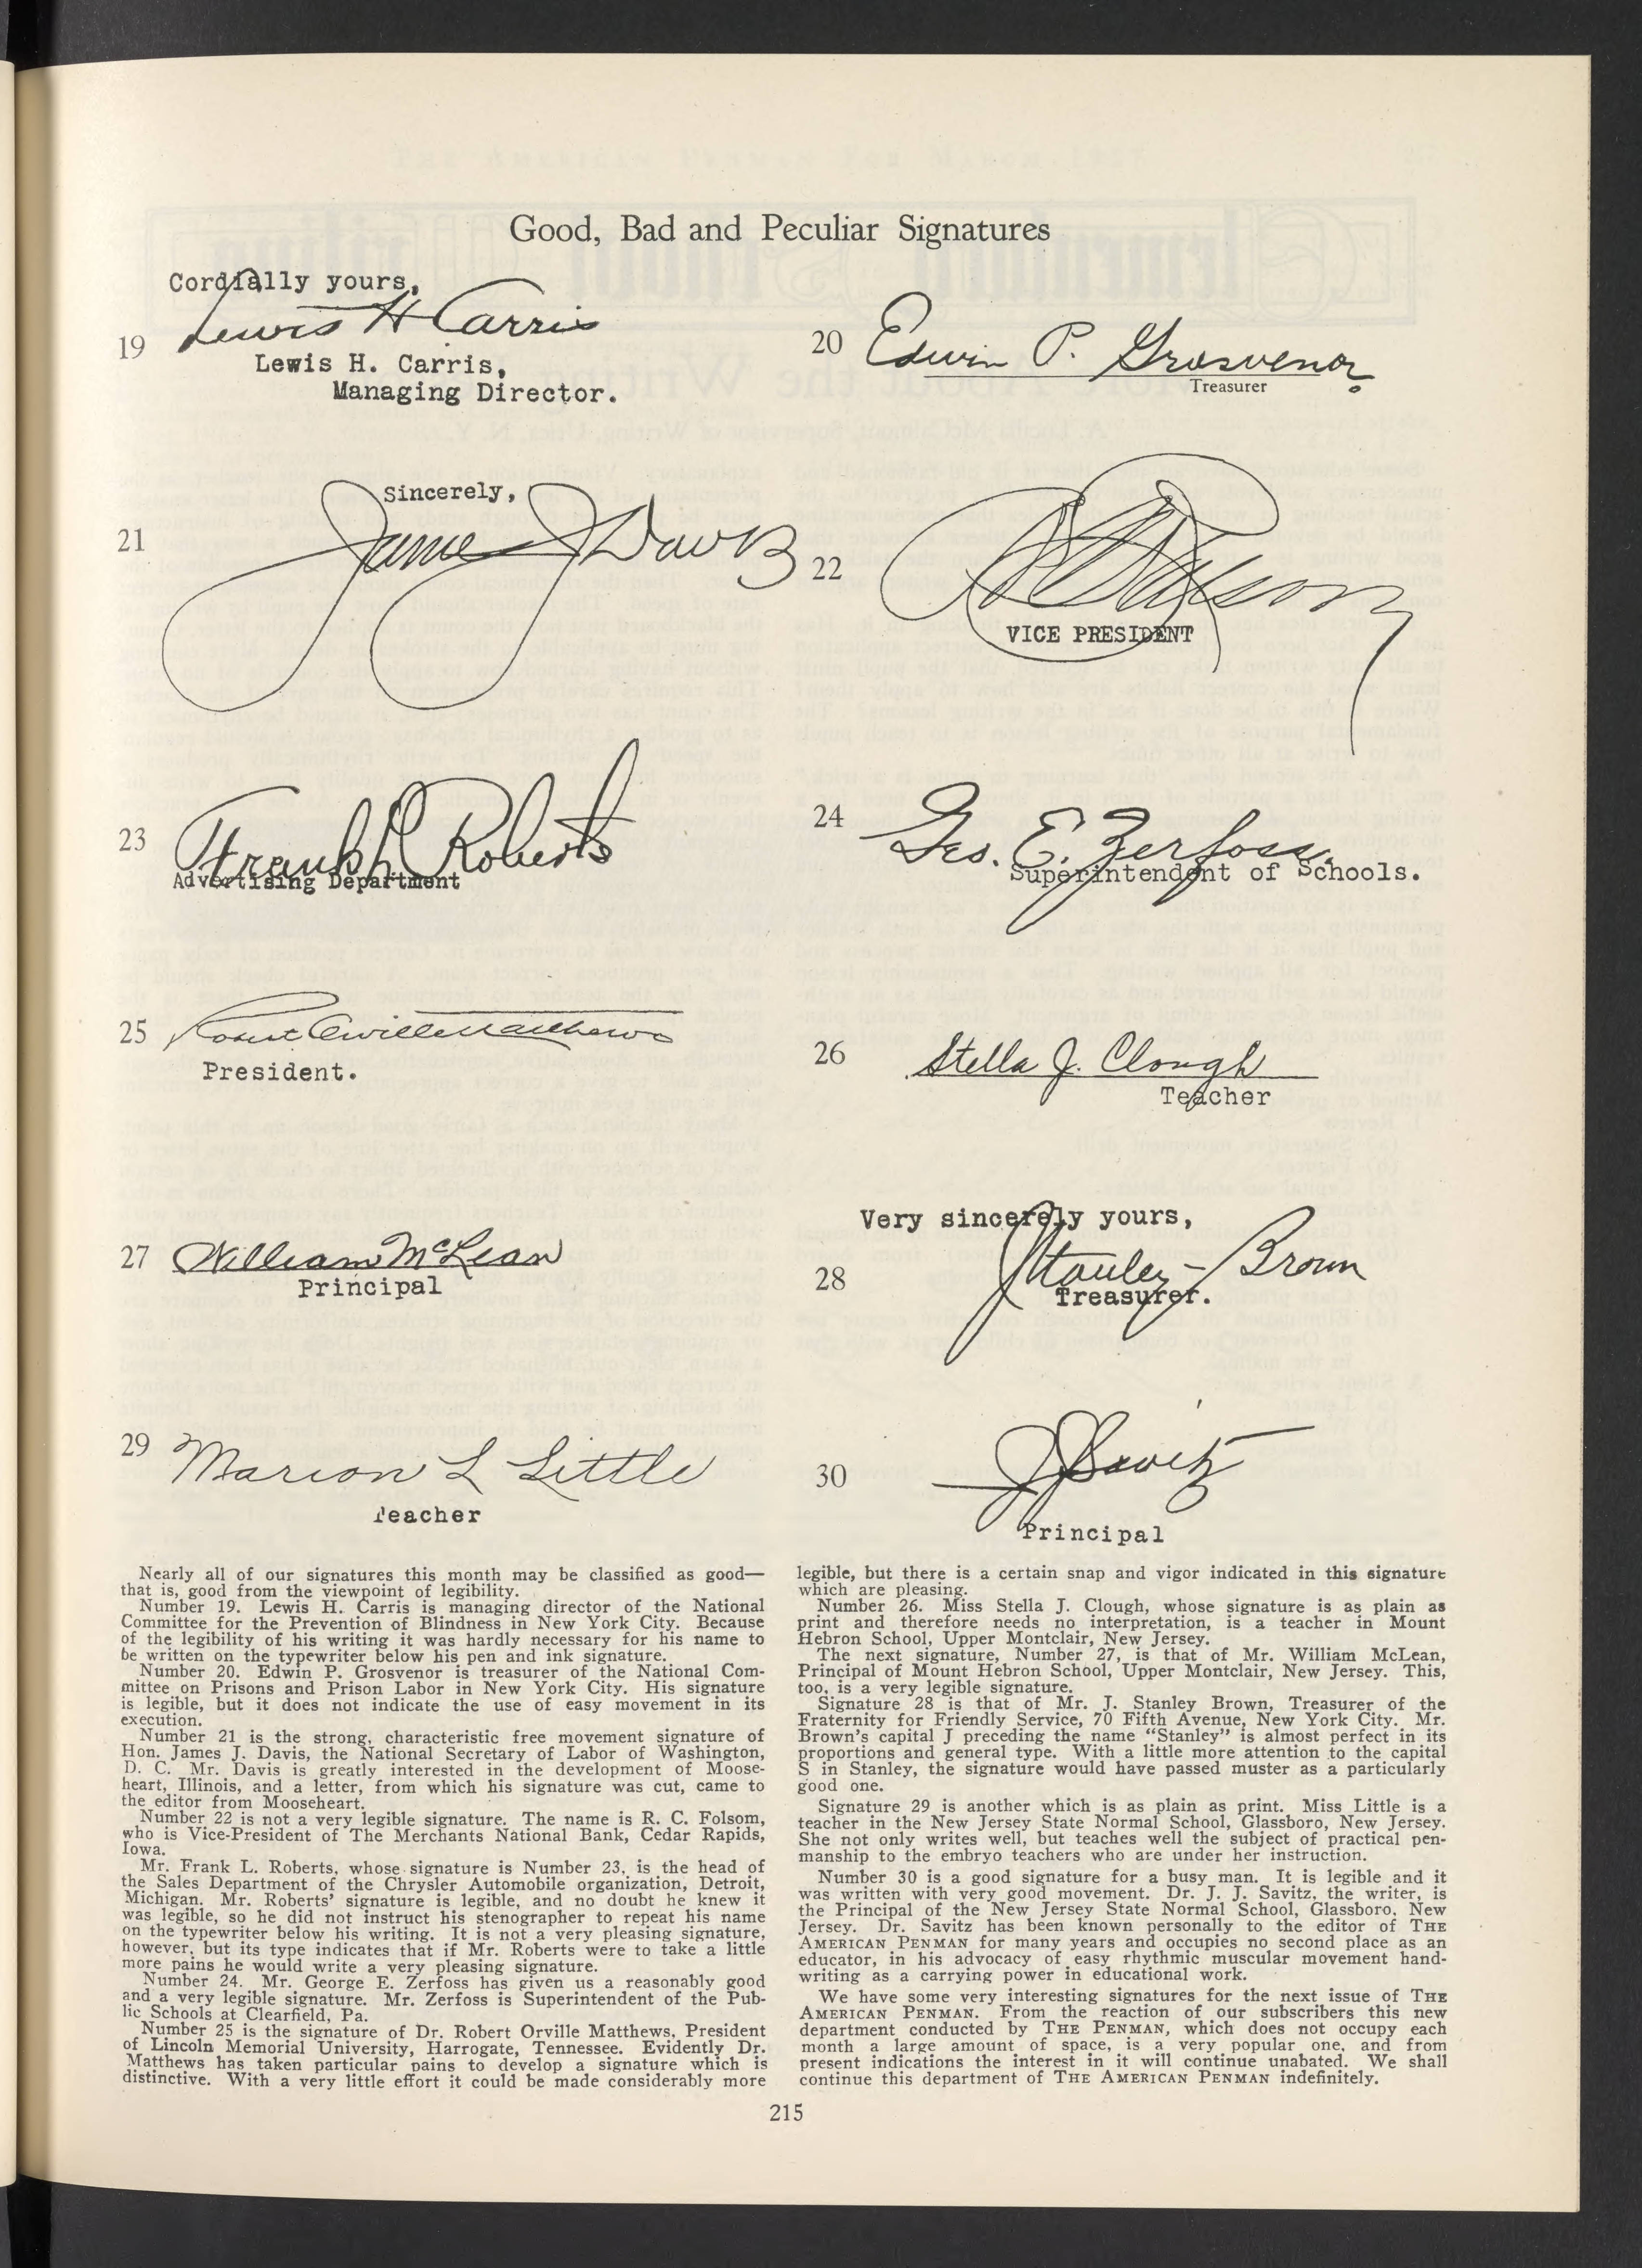 Good, Bad and Peculiar Signatures
Cordially yours,
19 Lewis H Carris
Lewis H. Carris,
Managing Director.
20 Edwin P. Grosvenor
Treasurer
Sincerely,
21 James J Davis
22
VICE PRESIDENT
23 Frank L Roberts
Advertising Department
24 Geo. E. Zerfoss.
Superintendent of Schools.
25 Robert Orville Matthews
President.
26 Stella J. Clough
Teacher
27 William McLean
Principal
Very sincerely yours,
28 J Stanley-Brown
Treasurer.
29 Marion L Little
Teacher
30 J J Savitz
Principal
Nearly all of our signatures this month may be classified as good—
that is, good from the viewpoint of legibility.
Number 19. Lewis H. Carris is managing director of the National
Committee for the Prevention of Blindness in New York City. Because
of the legibility of his writing it was hardly necessary for his name to
be written on the typewriter below his pen and ink signature.
Number 20. Edwin P. Grosvenor is treasurer of the National Com-
mittee on Prisons and Prison Labor in New York City. His signature
is legible, but it does not indicate the use of easy movement in its
execution.
Number 21 is the strong, characteristic free movement signature of
Hon. James J. Davis, the National Secretary of Labor of Washington,
D. C. Mr. Davis is greatly interested in the development of Moose-
heart, Illinois, and a letter, from which his signature was cut, came to
the editor from Mooseheart.
Number 22 is not a very legible signature. The name is R. C. Folsom,
who is Vice-President of The Merchants National Bank, Cedar Rapids,
Iowa.
Mr. Frank L. Roberts, whose signature is Number 23, is the head of
the Sales Department of the Chrysler Automobile organization, Detroit,
Michigan. Mr. Roberts' signature is legible, and no doubt he knew it
was legible, so he did not instruct his stenographer to repeat his name
on the typewriter below his writing. It is not a very pleasing signature,
however, but its type indicates that if Mr. Roberts were to take a little
more pains he would write a very pleasing signature.
Number 24. Mr. George E. Zerfoss has given us a reasonably good
and a very legible signature. Mr. Zerfoss is Superintendent of the Pub-
lic Schools at Clearfield, Pa.
Number 25 is the signature of Dr. Robert Orville Matthews, President
of Lincoln Memorial University, Harrogate, Tennessee. Evidently Dr.
Matthews has taken particular pains to develop a signature which is
distinctive. With a very little effort it could be made considerably more
legible, but there is a certain snap and vigor indicated in this signature
which are pleasing.
Number 26. Miss Stella J. Clough, whose signature is as plain as
print and therefore needs no interpretation, is a teacher in Mount
Hebron School, Upper Montclair, New Jersey.
The next signature, Number 27, is that of Mr. William McLean,
Principal of Mount Hebron School, Upper Montclair, New Jersey. This,
too, is a very legible signature.
Signature 28 is that of Mr. J. Stanley Brown, Treasurer of the
Fraternity for Friendly Service, 70 Fifth Avenue, New York City. Mr.
Brown's capital J preceding the name "Stanley" is almost perfect in its
proportions and general type. With a little more attention to the capital
S in Stanley, the signature would have passed muster as a particularly
good one.
Signature 29 is another which is as plain as print. Miss Little is a
teacher in the New Jersey State Normal School, Glassboro, New Jersey.
She not only writes well, but teaches well the subject of practical pen-
manship to the embryo teachers who are under her instruction.
Number 30 is a good signature for a busy man. It is legible and it
was written with very good movement. Dr. J. J. Savitz, the writer, is
the Principal of the New Jersey State Normal School, Glassboro, New
Jersey. Dr. Savitz has been known personally to the editor of THE
AMERICAN PENMAN for many years and occupies no second place as an
educator, in his advocacy of easy rhythmic muscular movement hand-
writing as a carrying power in educational work.
We have some very interesting signatures for the next issue of THE
AMERICAN PENMAN. From the reaction of our subscribers this new
department conducted by THE PENMAN, which does not occupy each
month a large amount of space, is a very popular one, and from
present indications the interest in it will continue unabated. We shall
continue this department of THE AMERICAN PENMAN indefinitely.
215